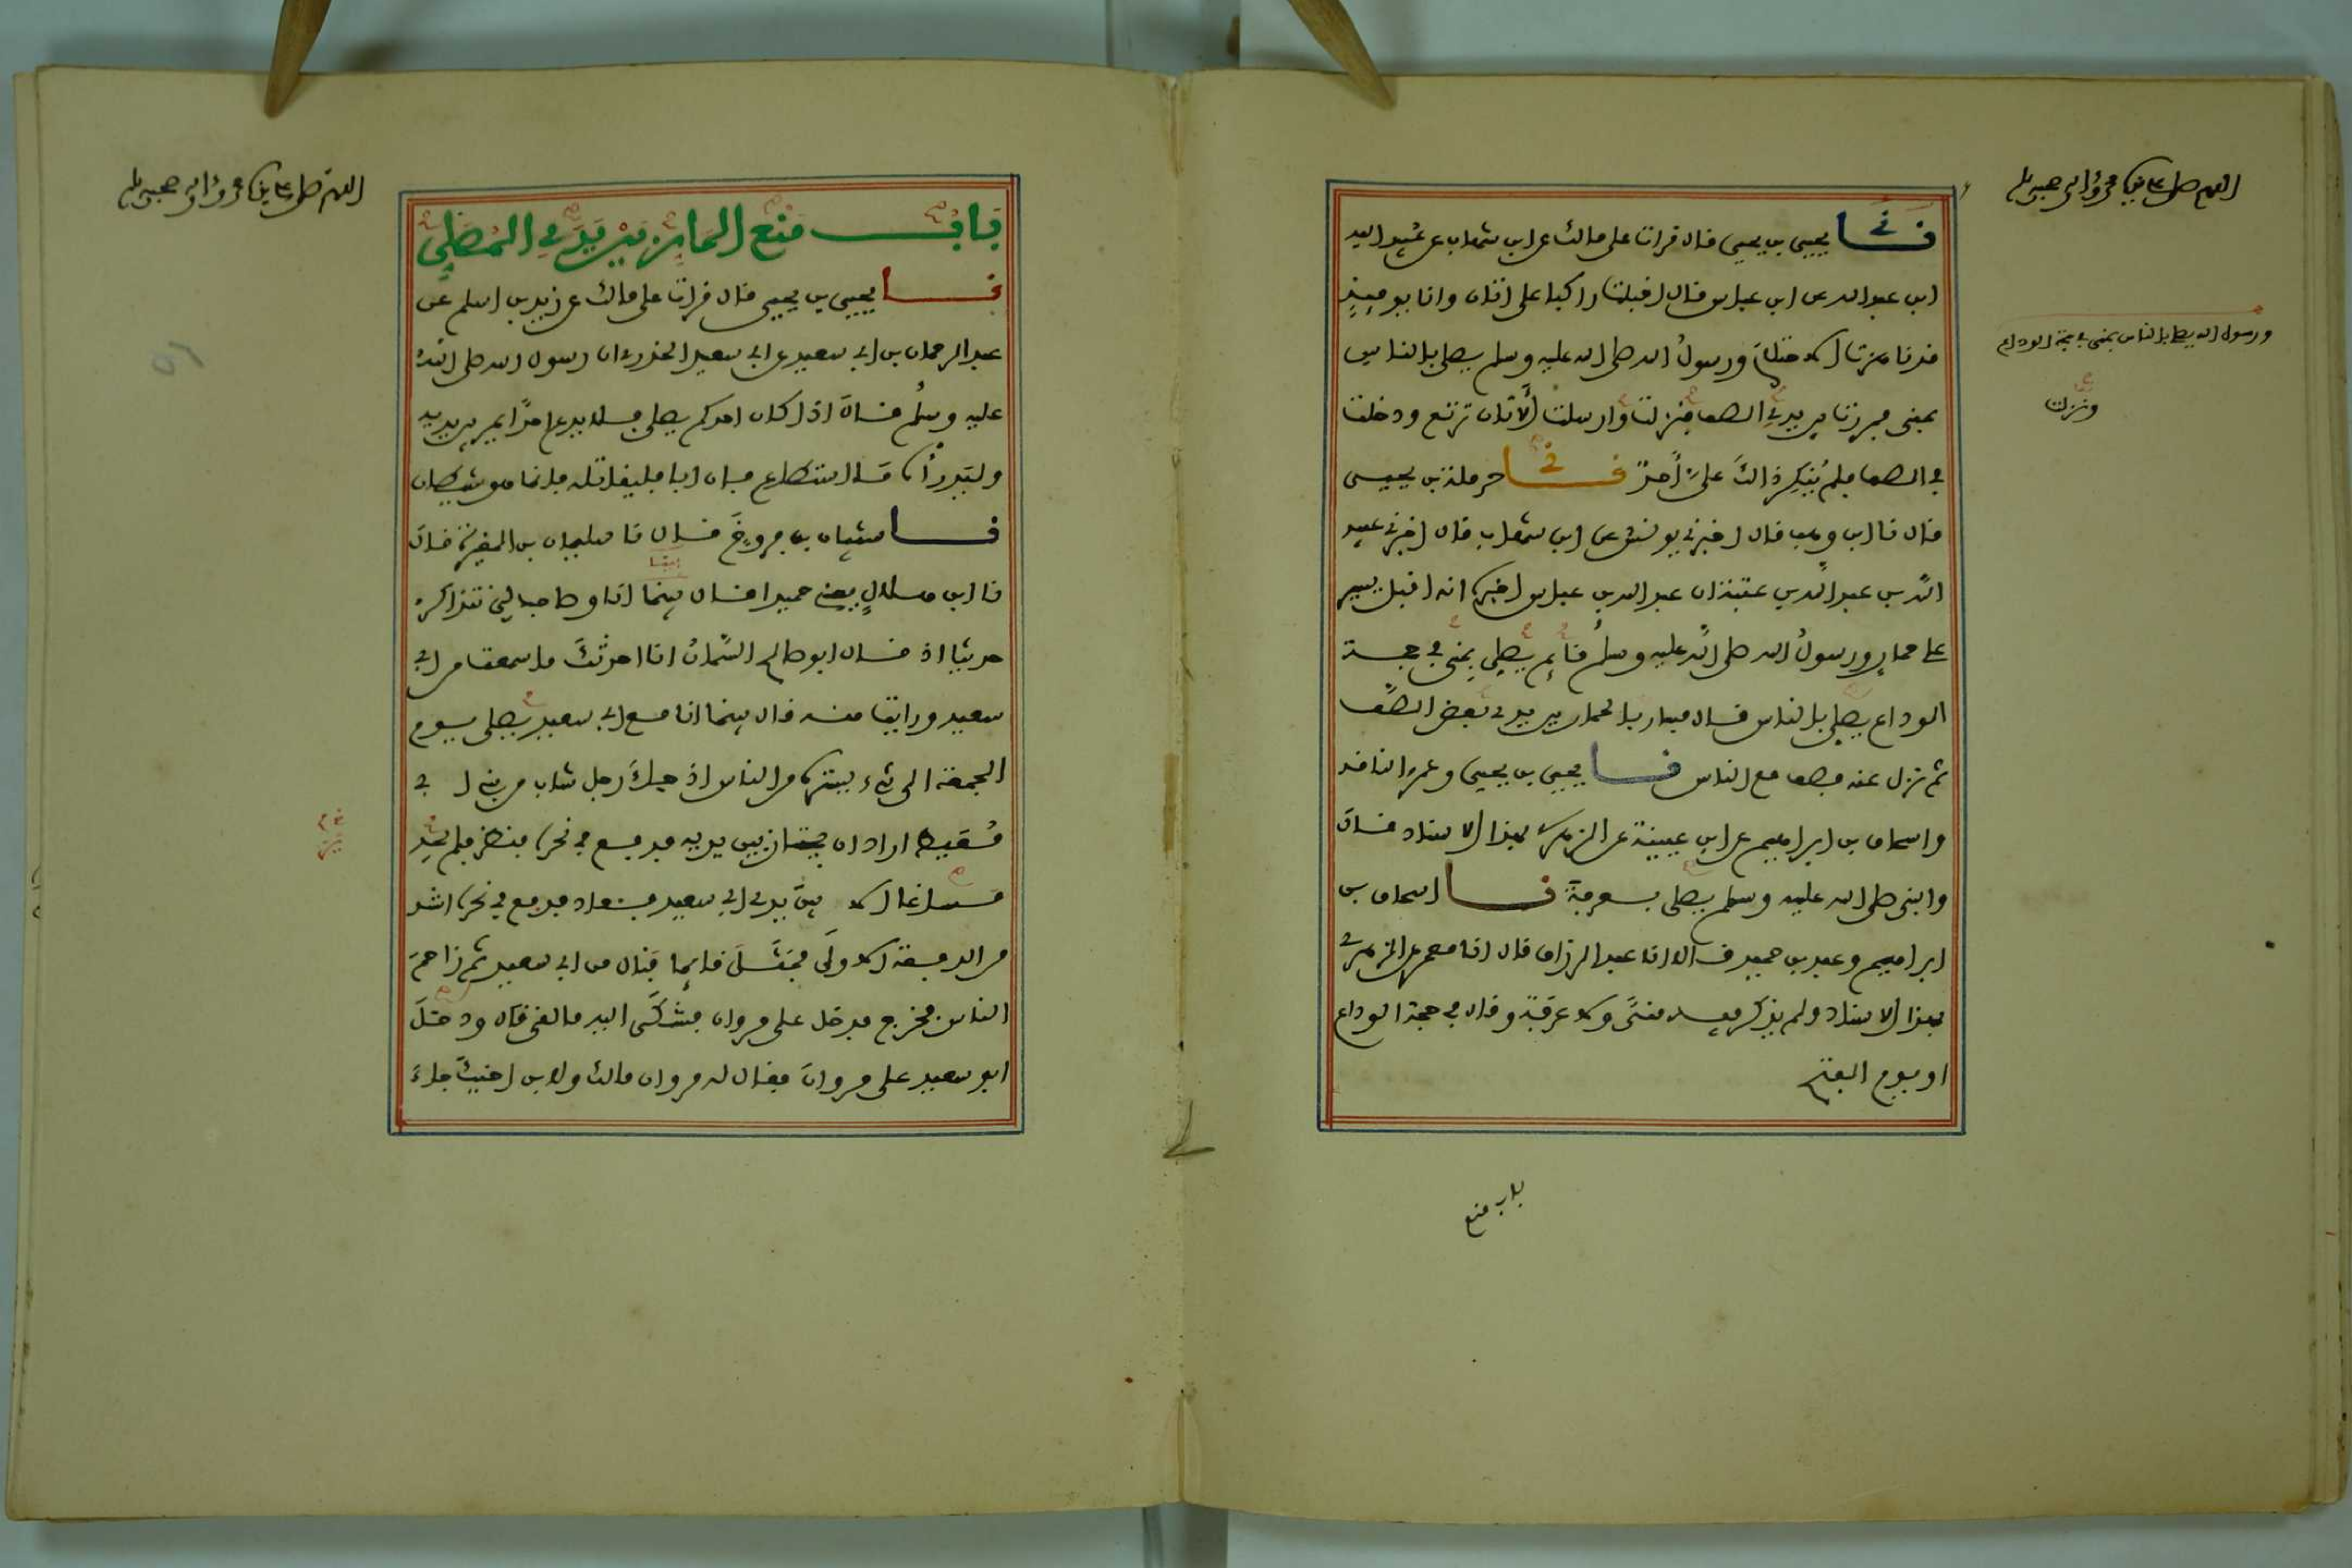 اللهم صل على سيدنا محمد وءاله وصحبه وسلم
نا يحيى بن يحيى قال قرات على مالك عن ابن شهاب عن عبيد الله
ابن عبد الله عن ابن عباس قال اقبلت راكبا على اتان وانا يومئذ
قد ناهزت الاحتلام ورسول الله صلى الله عليه وسلم يصلي بالناس
بمنى فمررت بين يدي الصف فنزلت وارسلت الاتان ترتع ودخلت
في الصف فلم ينكر ذالك علي احد نا حرملة بن يحيى
قال نا ابن وهب قال اخبرني يونس عن ابن شهاب قال اخبرني عبيد
الله بن عبد الله بن عتبة ان عبد الله بن عباس اخبره انه اقبل يسير
على حمار ورسول الله صلى الله عليه وسلم قائم يصلي بمنى في حجة
الوداع يصلي بالناس قال فسار بالحمار بين يدي بعض الصف
ثم نزل عنه فصف مع الناس نا يحيى بن يحيى وعمرو الناقد
واسحاق بن ابراهيم عن ابن عيينة عن الزهري بهذا الاسناد قال
والنبي صلى الله عليه وسلم يصلي بعرفة نا اسحاق بن
ابراهيم وعبد بن حميد قالا انا عبد الرزاق قال انا معمر عن الزهري
بهذا الاسناد ولم يذكر فيه منى ولا عرفة وقال في حجة الوداع
او يوم الفتح
ورسول الله يصلي بالناس بمنى في حجة الوداع
ونزلت
باب منع
اللهم صل على سيدنا محمد وءاله وصحبه وسلم
باب منع المار بين يدي المصلي
نا يحيى بن يحيى قال قرات على مالك عن زيد بن اسلم عن
عبد الرحمان بن ابي سعيد عن ابي سعيد الخدري ان رسول الله صلى الله
عليه وسلم قال اذا كان احدكم يصلي فلا يدع احدا يمر بين يديه
وليدرأه ما استطاع فان ابا فليقاتله فانما هو شيطان
نا شيبان بن فروخ قال نا سليمان بن المغيرة قال
نا ابن هلال يعني حميدا قال بينما انا وصاحب لي نتذاكر
حديثا اذ قال ابو صالح السمان انا احدثك ما سمعت من ابي
سعيد ورايت منه قال بينما انا مع ابي سعيد يصلي يوم
الجمعة الى شيء يستره من الناس اذ جاء رجل شاب من بني ابي
معيط اراد ان يجتاز بين يديه فدفع في نحره فنظر فلم يجد
مساغا الا بين يدي ابي سعيد فعاد فدفع في نحره اشد
من الدفعة الاولى فمثل قائما فنال من ابي سعيد ثم زاحم
الناس فخرج فدخل على مروان فشكى اليه ما لقي قال ودخل
ابو سعيد على مروان فقال له مروان مالك ولابن اخيك جاء